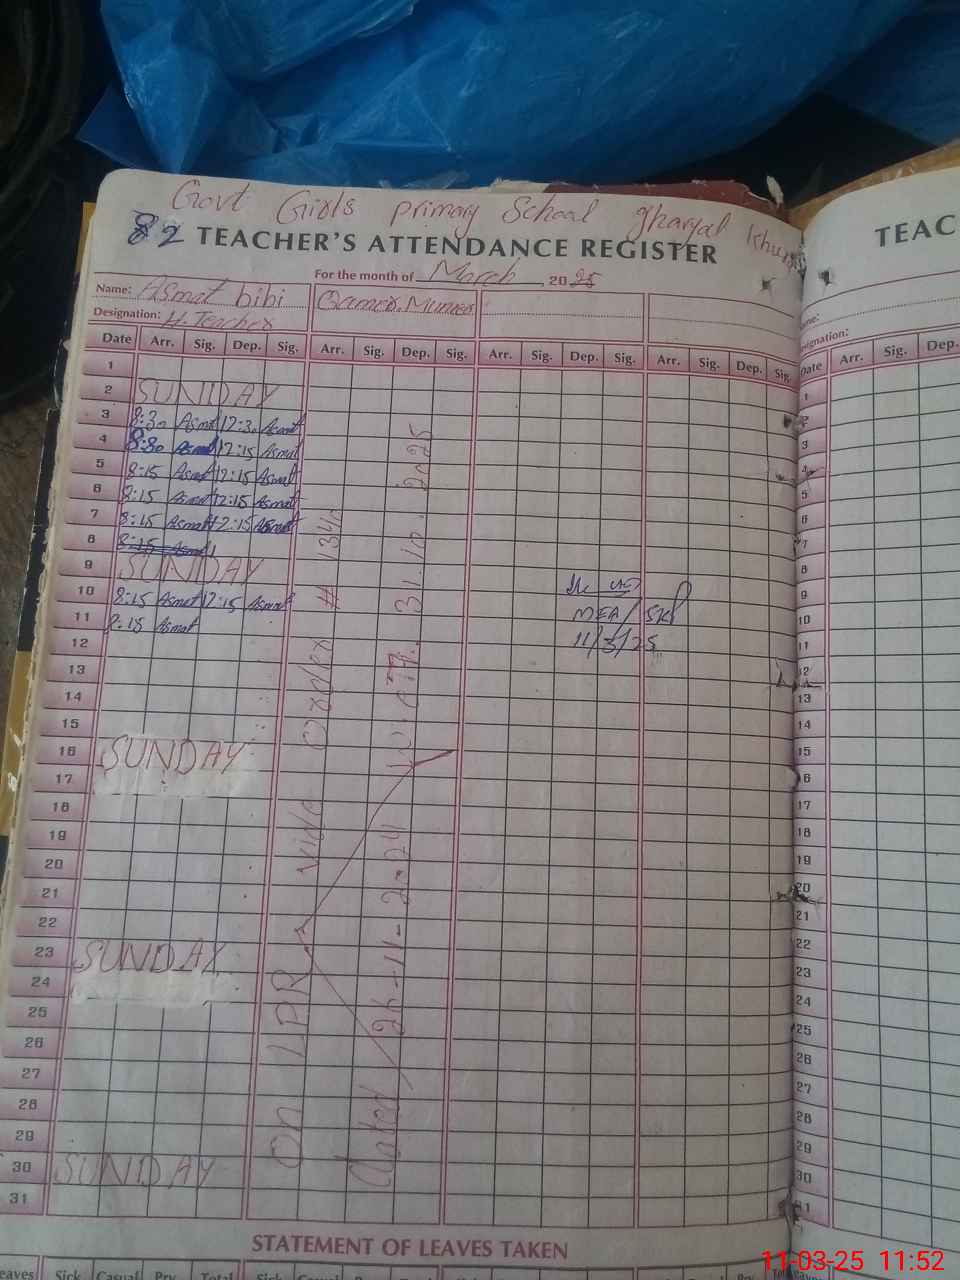 Govt Girls primary School gharyal
82 TEACHER'S ATTENDANCE REGISTER
For the month of March, 2025
Name: Asmat bibi
Designation: H. Teacher
Date Arr. Sig. Dep. Sig. Arr. Sig. Dep. Arr. Sig. Dep. Sig. Arr. Sig. Dep. Sig.
1
2 SUNDAY
3 8:30 Asmat 12:30 Asmat
4 8:30 Asmat 12:15 Asmat
5 8:15 Asmat 12:15 Asmat
6 8:15 Asmat 12:15 Asmat
7 8:15 Asmat 12:15 Asmat
8 8:15 Asmat
9 SUNDAY
10 8:15 Asmat 12:15 Asmat
11 8:15 Asmat
12
13
14
15
16 SUNDAY
17
18
19
20
21
22
23 SUNDAY
24
25
26
27
28
29
30 SUNDAY
31
On LPR Vide Order #
Dated 26-11-2024 31.10.2025
MEA/SKP
11/3/25
STATEMENT OF LEAVES TAKEN
Leaves Sick Casual Prv. Total Sick
TEAC
Name:
Designation:
Date Arr. Sig. Dep.
1
2
3
4
5
6
7
8
9
10
11
12
13
14
15
16
17
18
19
20
21
22
23
24
25
26
27
28
29
30
31
11-03-25 11:52